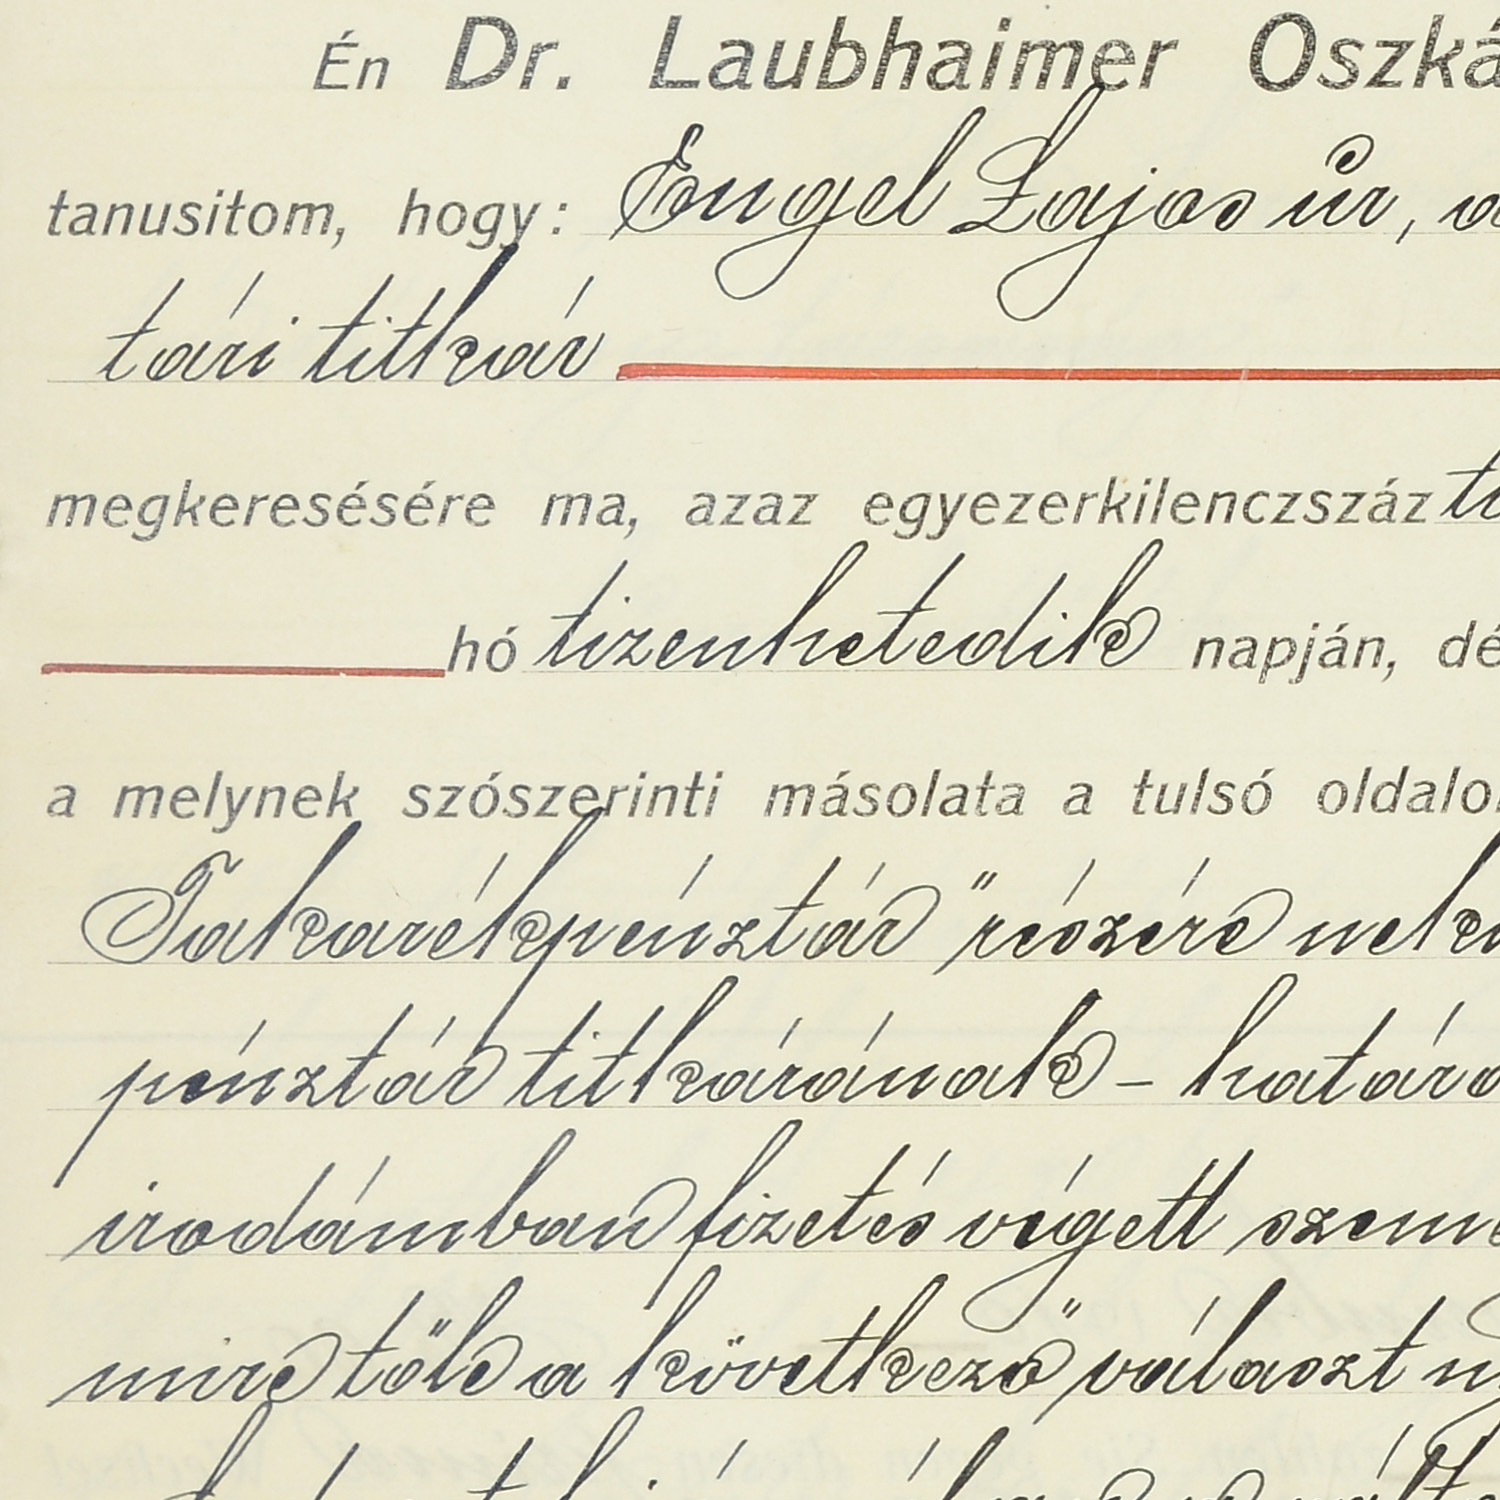 Én Dr. Laubhaimer Oszká
tanusitom, hogy: Engel Lajos úr, a
tári titkár
megkeresésére ma, azaz egyezerkilenczszáz ti
hó tizenhetedik napján, dé
a melynek szószerinti másolata a tulsó oldalo
Takarékpénztár" részére nek
pénztár titkárának – határ
irodámban fizetés végett szem
mire tőle a következő választ n